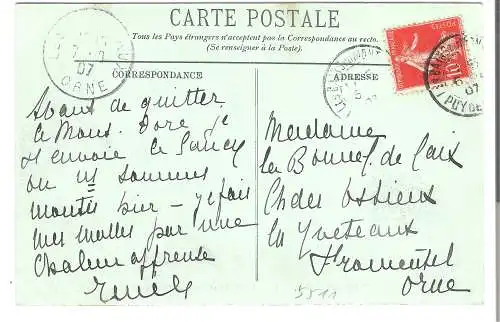 CARTE POSTALE
Tous les Pays étrangers n'acceptent pas la Correspondance au recto.
(Se renseigner à la Poste).
CORRESPONDANCE
ADRESSE
ORNE
07
07
PUY DE
10
Avant de quitter
le Mont Dore je
t'envoie le Sancy
ou ns sommes
montés hier - je fais
mes malles par une
chaleur affreuse
Madame
de Bonnet de Caix
Ch des Ostieux
la
Fromentel
Orne
5511